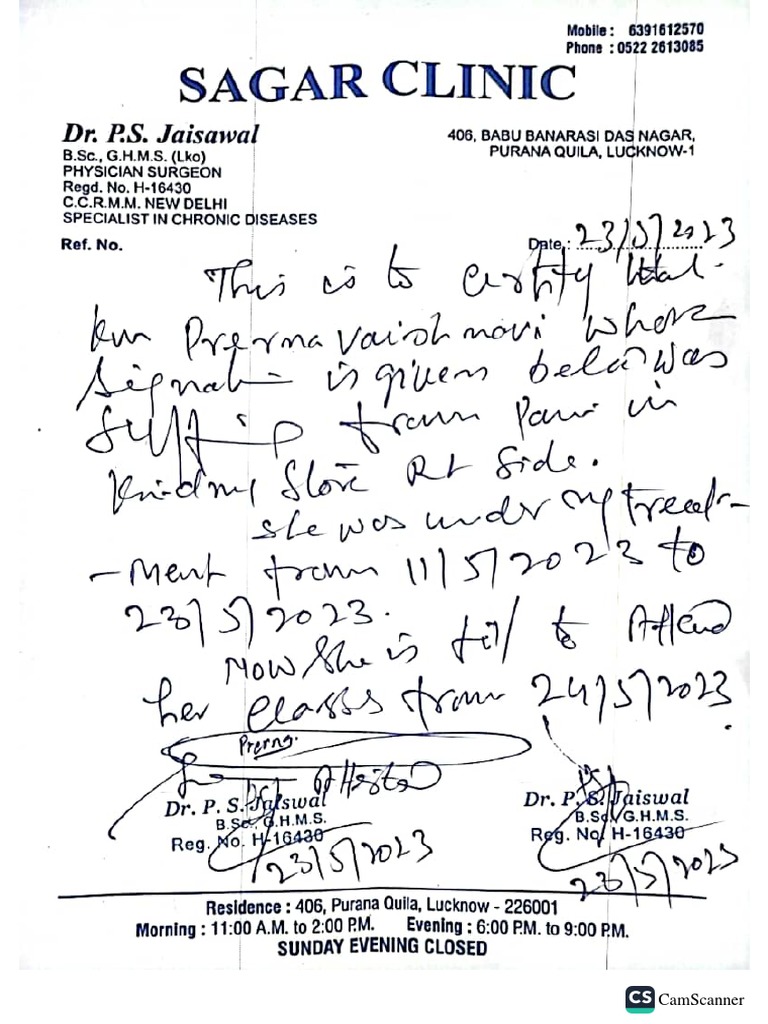 Mobile : 6391612570
Phone : 0522 2613085
SAGAR CLINIC
Dr. P.S. Jaisawal
B.Sc., G.H.M.S. (Lko)
PHYSICIAN SURGEON
Regd. No. H-16430
C.C.R.M.M. NEW DELHI
SPECIALIST IN CHRONIC DISEASES
406, BABU BANARASI DAS NAGAR,
PURANA QUILA, LUCKNOW-1
Ref. No.
Date : 23/5/2023
This is to certify that
km Prerna Vaishnavi whose
Signat is given below was
Suffing from Pain in
Kindny Stone Rt Side.
She was under my treat-
-ment from 11/5/2023 to
23/5/2023.
Now She is fit to Attend
her classes from 24/5/2023
Prerna.
Attested
Dr. P. S. Jaiswal
B.Sc., G.H.M.S.
Reg. No. H-16430
23/5/2023
Dr. P. S. Jaiswal
B.Sc., G.H.M.S.
Reg. No. H-16430
23/5/2023
Residence : 406, Purana Quila, Lucknow - 226001
Morning : 11:00 A.M. to 2:00 P.M. Evening : 6:00 P.M. to 9:00 P.M.
SUNDAY EVENING CLOSED
CS CamScanner